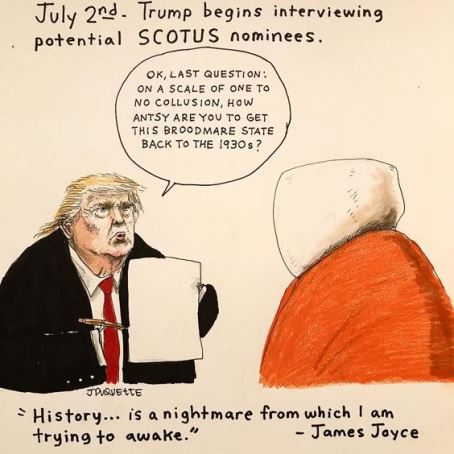 July 2nd - Trump begins interviewing
potential SCOTUS nominees.
OK, LAST QUESTION:
ON A SCALE OF ONE TO
NO COLLUSION, HOW
ANTSY ARE YOU TO GET
THIS BROODMARE STATE
BACK TO THE 1930s?
J DUQUETTE
"History... is a nightmare from which I am
trying to awake."
- James Joyce